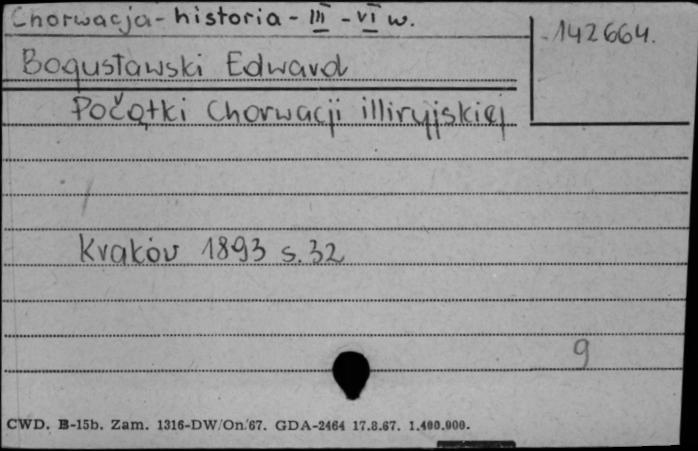 Chorwacja - historia - III - VI w.
142664.
Bogusławski Edward
Počątki Chorwacji illiryjskiej
Kraków 1893 s. 32
9
CWD. B-15b. Zam. 1316-DW/On.'67. GDA-2464 17.8.67. 1.400.000.